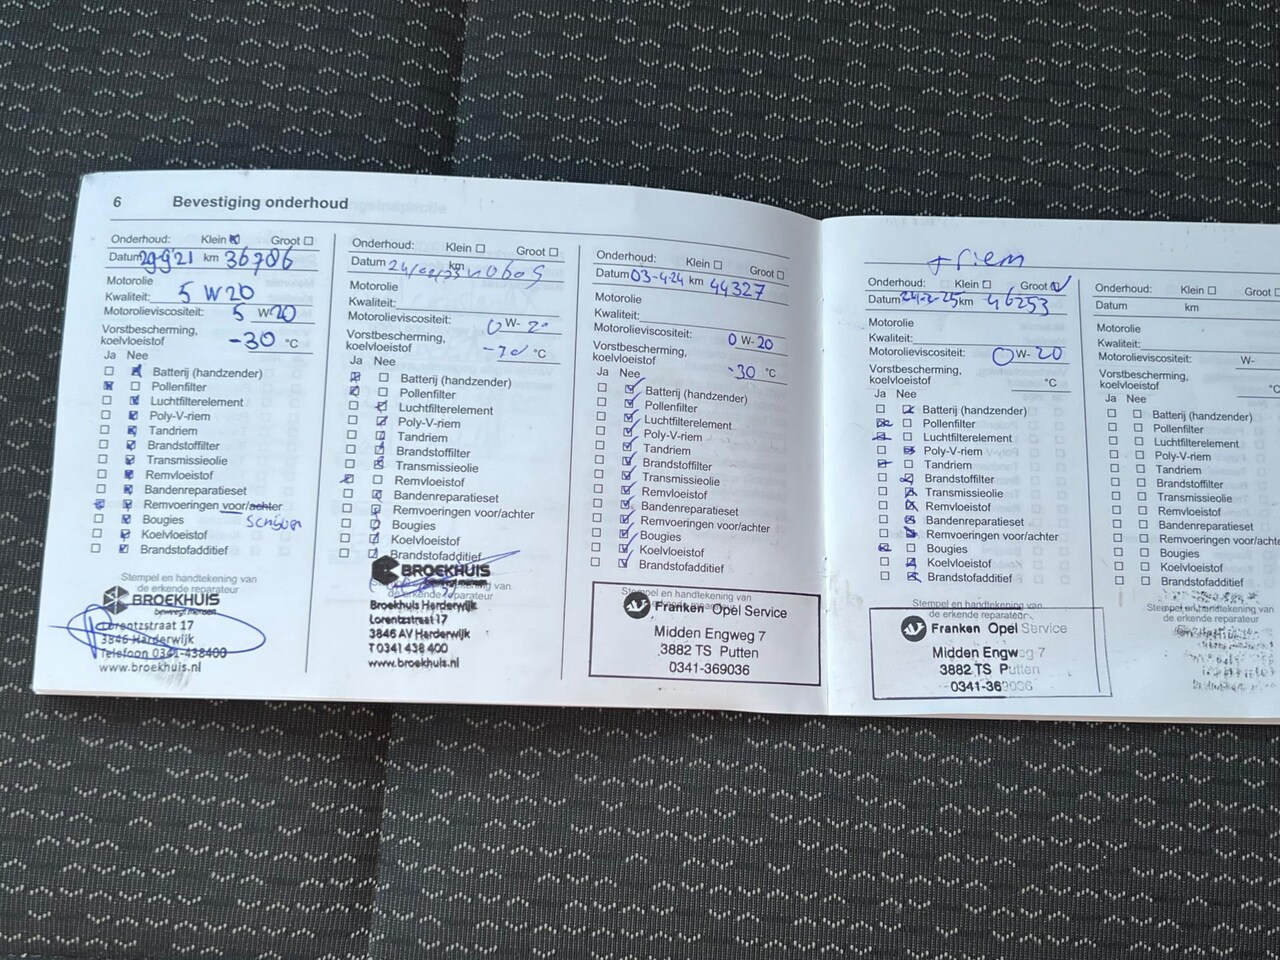 6 Bevestiging onderhoud
Onderhoud: Klein Groot
Datum 29-9-'21 km 36786
Motorolie
Kwaliteit: 5 W20
Motorolieviscositeit: 5 W-20
Vorstbescherming,
koelvloeistof -30 °C
Ja Nee
Batterij (handzender)
Pollenfilter
Luchtfilterelement
Poly-V-riem
Tandriem
Brandstoffilter
Transmissieolie
Remvloeistof
Bandenreparatieset
Remvoeringen voor/achter
Bougies
Koelvloeistof
Brandstofadditief
Stempel en handtekening van
de erkende reparateur
BROEKHUIS
Lorentzstraat 17
3846 Harderwijk
Telefoon 0341-438400
www.broekhuis.nl
Onderhoud: Klein Groot
Datum km
Motorolie
Kwaliteit:
Motorolieviscositeit: 0 W-20
Vorstbescherming,
koelvloeistof °C
Ja Nee
Batterij (handzender)
Pollenfilter
Luchtfilterelement
Poly-V-riem
Tandriem
Brandstoffilter
Transmissieolie
Remvloeistof
Bandenreparatieset
Remvoeringen voor/achter
Bougies
Koelvloeistof
Brandstofadditief
de erkende reparateur
BROEKHUIS
Broekhuis Harderwijk
Lorentzstraat 17
3846 AV Harderwijk
T 0341 438 400
www.broekhuis.nl
Onderhoud: Klein Groot
Datum 03-4-24 km 44327
Motorolie
Kwaliteit:
Motorolieviscositeit: 0 W-20
Vorstbescherming,
koelvloeistof -30 °C
Ja Nee
Batterij (handzender)
Pollenfilter
Luchtfilterelement
Poly-V-riem
Tandriem
Brandstoffilter
Transmissieolie
Remvloeistof
Bandenreparatieset
Remvoeringen voor/achter
Bougies
Koelvloeistof
Brandstofadditief
Stempel en handtekening van
de erkende reparateur
Franken Opel Service
Midden Engweg 7
3882 TS Putten
0341-369036
+ riem
Onderhoud: Klein Groot
Datum 24-2-25 km 46253
Motorolie
Kwaliteit:
Motorolieviscositeit: 0 W-20
Vorstbescherming,
koelvloeistof °C
Ja Nee
Batterij (handzender)
Pollenfilter
Luchtfilterelement
Poly-V-riem
Tandriem
Brandstoffilter
Transmissieolie
Remvloeistof
Bandenreparatieset
Remvoeringen voor/achter
Bougies
Koelvloeistof
Brandstofadditief
Stempel en handtekening van
de erkende reparateur
Franken Opel Service
Midden Engweg 7
3882 TS Putten
0341-369036
Onderhoud: Klein Groot
Datum km
Motorolie
Kwaliteit:
Motorolieviscositeit: W-
Vorstbescherming,
koelvloeistof °C
Ja Nee
Batterij (handzender)
Pollenfilter
Luchtfilterelement
Poly-V-riem
Tandriem
Brandstoffilter
Transmissieolie
Remvloeistof
Bandenreparatieset
Remvoeringen voor/achter
Bougies
Koelvloeistof
Brandstofadditief
Stempel en handtekening van